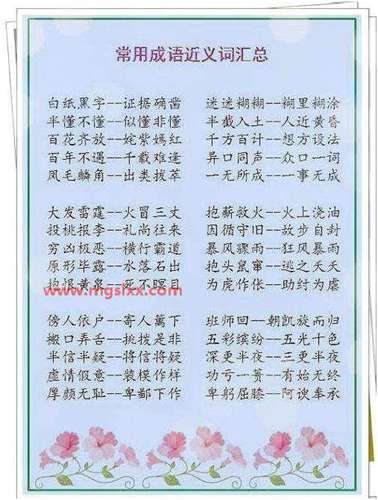 常用成语近义词汇总
白纸黑字--证据确凿 迷迷糊糊--糊里糊涂
半懂不懂--似懂非懂 半截入土--人近黄昏
百花齐放--姹紫嫣红 千方百计--想方设法
百年不遇--千载难逢 异口同声--众口一词
凤毛麟角--出类拔萃 一无所成--一事无成
大发雷霆--火冒三丈 抱薪救火--火上浇油
投桃报李--礼尚往来 因循守旧--故步自封
穷凶极恶--横行霸道 暴风骤雨--狂风暴雨
原形毕露--水落石出 抱头鼠窜--逃之夭夭
抱恨黄泉--死不瞑目 为虎作伥--助纣为虐
www.mgslxx.com
傍人依户--寄人篱下 班师回--朝凯旋而归
搬口弄舌--挑拨是非 五彩缤纷--五光十色
半信半疑--将信将疑 深更半夜--三更半夜
虚情假意--装模作样 功亏一篑--有始无终
厚颜无耻--卑鄙下作 卑躬屈膝--阿谀奉承